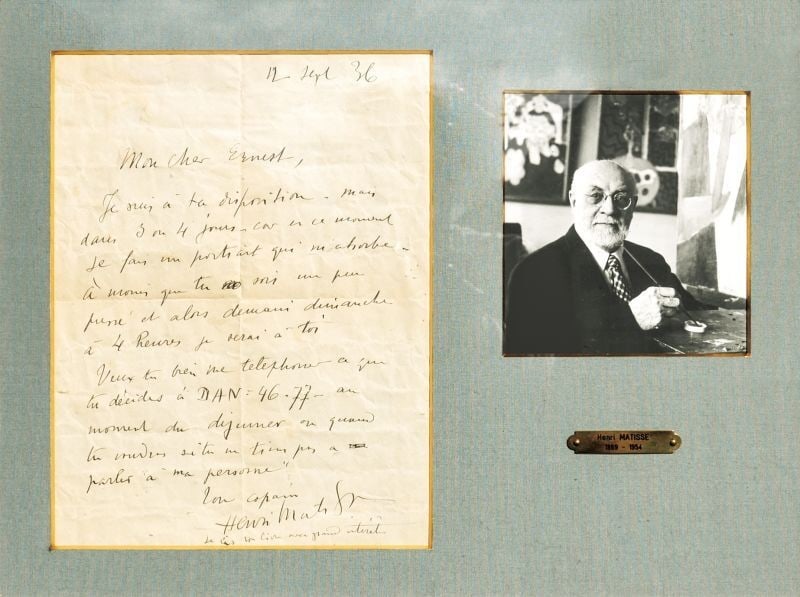 12 Sept 36
Mon cher Ernest,
Je suis à ta disposition - mais
dans 3 ou 4 jours - car en ce moment
je fais un portrait qui m'absorbe -
À moins que tu sois un peu
pressé et alors demain dimanche
à 4 heures je serai à toi
Veux tu bien me telephoner ce que
tu décides à DAN = 46-77 - au
moment du dejeuner ou quand
tu voudras si tu ne tiens pas à
parler à ma personne
Ton copain
Henri Matisse
je lis ton livre avec grand intérêt
Henri MATISSE
1869 - 1954